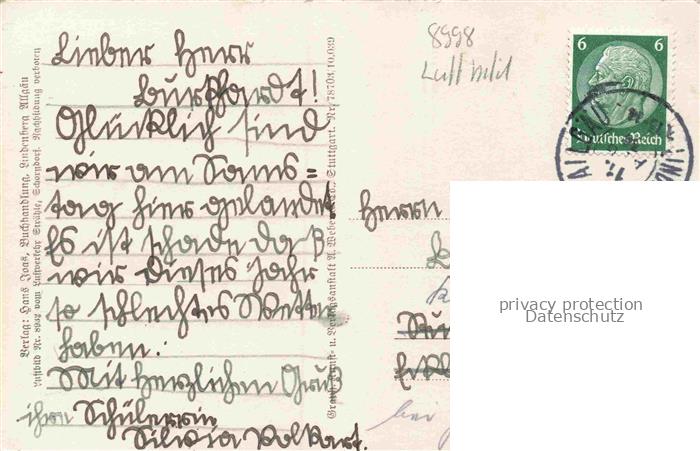 Lieber Herr
Burkhardt!
Glücklich sind
wir am Sams=
tag hier gelandet
Es ist schade daß
wir dieses Jahr
so schlechtes Wetter
haben.
Mit herzlichen Gruß
ihre Schülerrin
Silwia Volkart.
Verlag: Hans Joas, Buchhandlung, Lindenberg Allgäu
Luftbild Nr. 8992 vom Luftverkehr Strähle, Schorndorf. Nachbildung verboten
Graph. Kunst- u. Verlagsanstalt A. Weber & Co., Stuttgart. Nr. 78703/10,039
8998
Luftbild
6 6
Deutsches Reich
Herrn
bei
privacy protection
Datenschutz